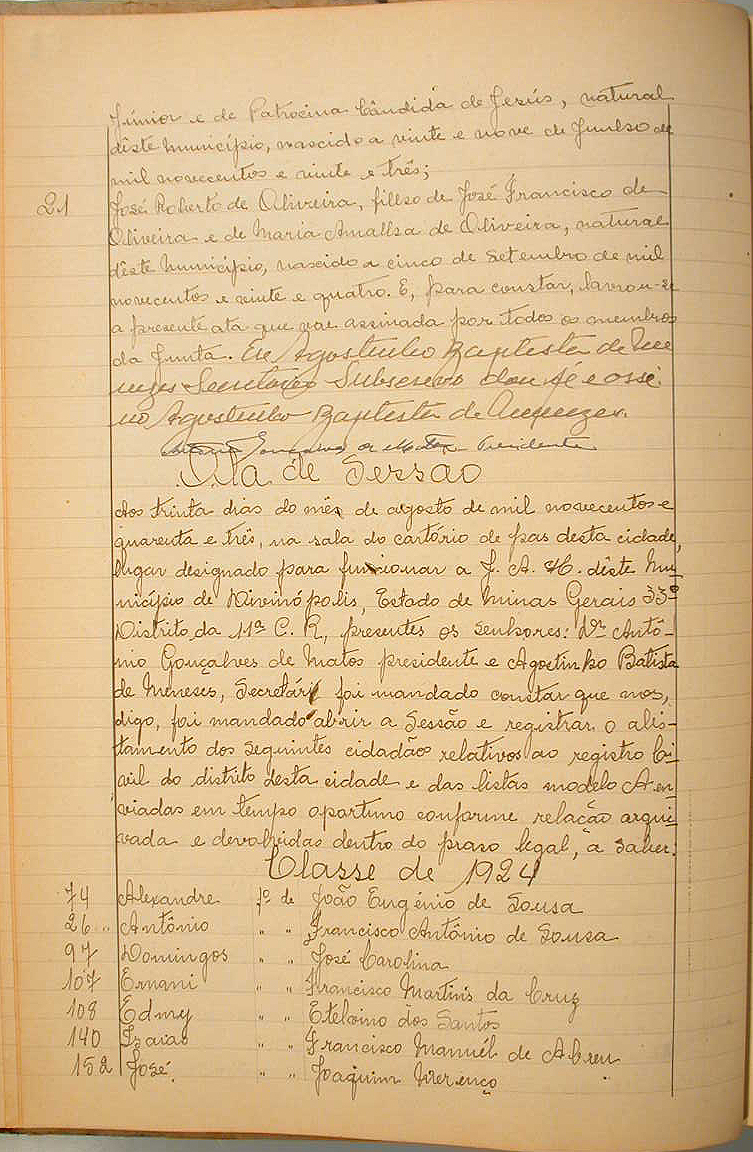 Júnior e de Patrocina Cândida de Jesús, natural
dêste município, nascido a vinte e nove de Junho de
mil novecentos e vinte e três;
21 José Roberto de Oliveira, filho de José Francisco de
Oliveira e de Maria Amalha de Oliveira, natural
dêste município, nascido a cinco de Setembro de mil
novecentos e vinte e quatro. E, para constar, lavrou-se
a presente ata que vae assinada por todos os membros
da Junta. Eu Agostinho Baptista de Me
nezes Secretário Subscrevo dou fé e assi
no Agostinho Baptista de Menezes.
Antonio Gonçalves de Matos Presidente
Ata de Sessão
Aos trinta dias do mês de agosto de mil novecentos e
quarenta e três, na sala do cartório de pas desta cidade,
lugar designado para funcionar a J. A. M. dêste Mu
nicípio de Divinópolis, Estado de Minas Gerais 33º
Distrito da 11ª C. R, presentes os senhores: Dr. Antô-
nio Gonçalves de Matos presidente e Agostinho Batista
de Meneses, Secretário foi mandado constar que nos,
digo, foi mandado abrir a Sessão e registrar o alis-
tamento dos seguintes cidadãos relativos ao registro Ci-
vil do distrito desta cidade e das listas modelo A en-
viadas em tempo oportuno conforme relação arqui
vada e devolvidas dentro do praso legal, a saber:
Classe de 1924
74 Alexandre fº de João Eugénio de Sousa
26 " Antônio " " Francisco Antônio de Sousa
97 Domingos " " José Carolina
107 Ernani " " Francisco Martins da Cruz
108 Edmy " " Etelvino dos Santos
140 Izaias " " Francisco Manuél de Abreu
152 José " " Joaquim